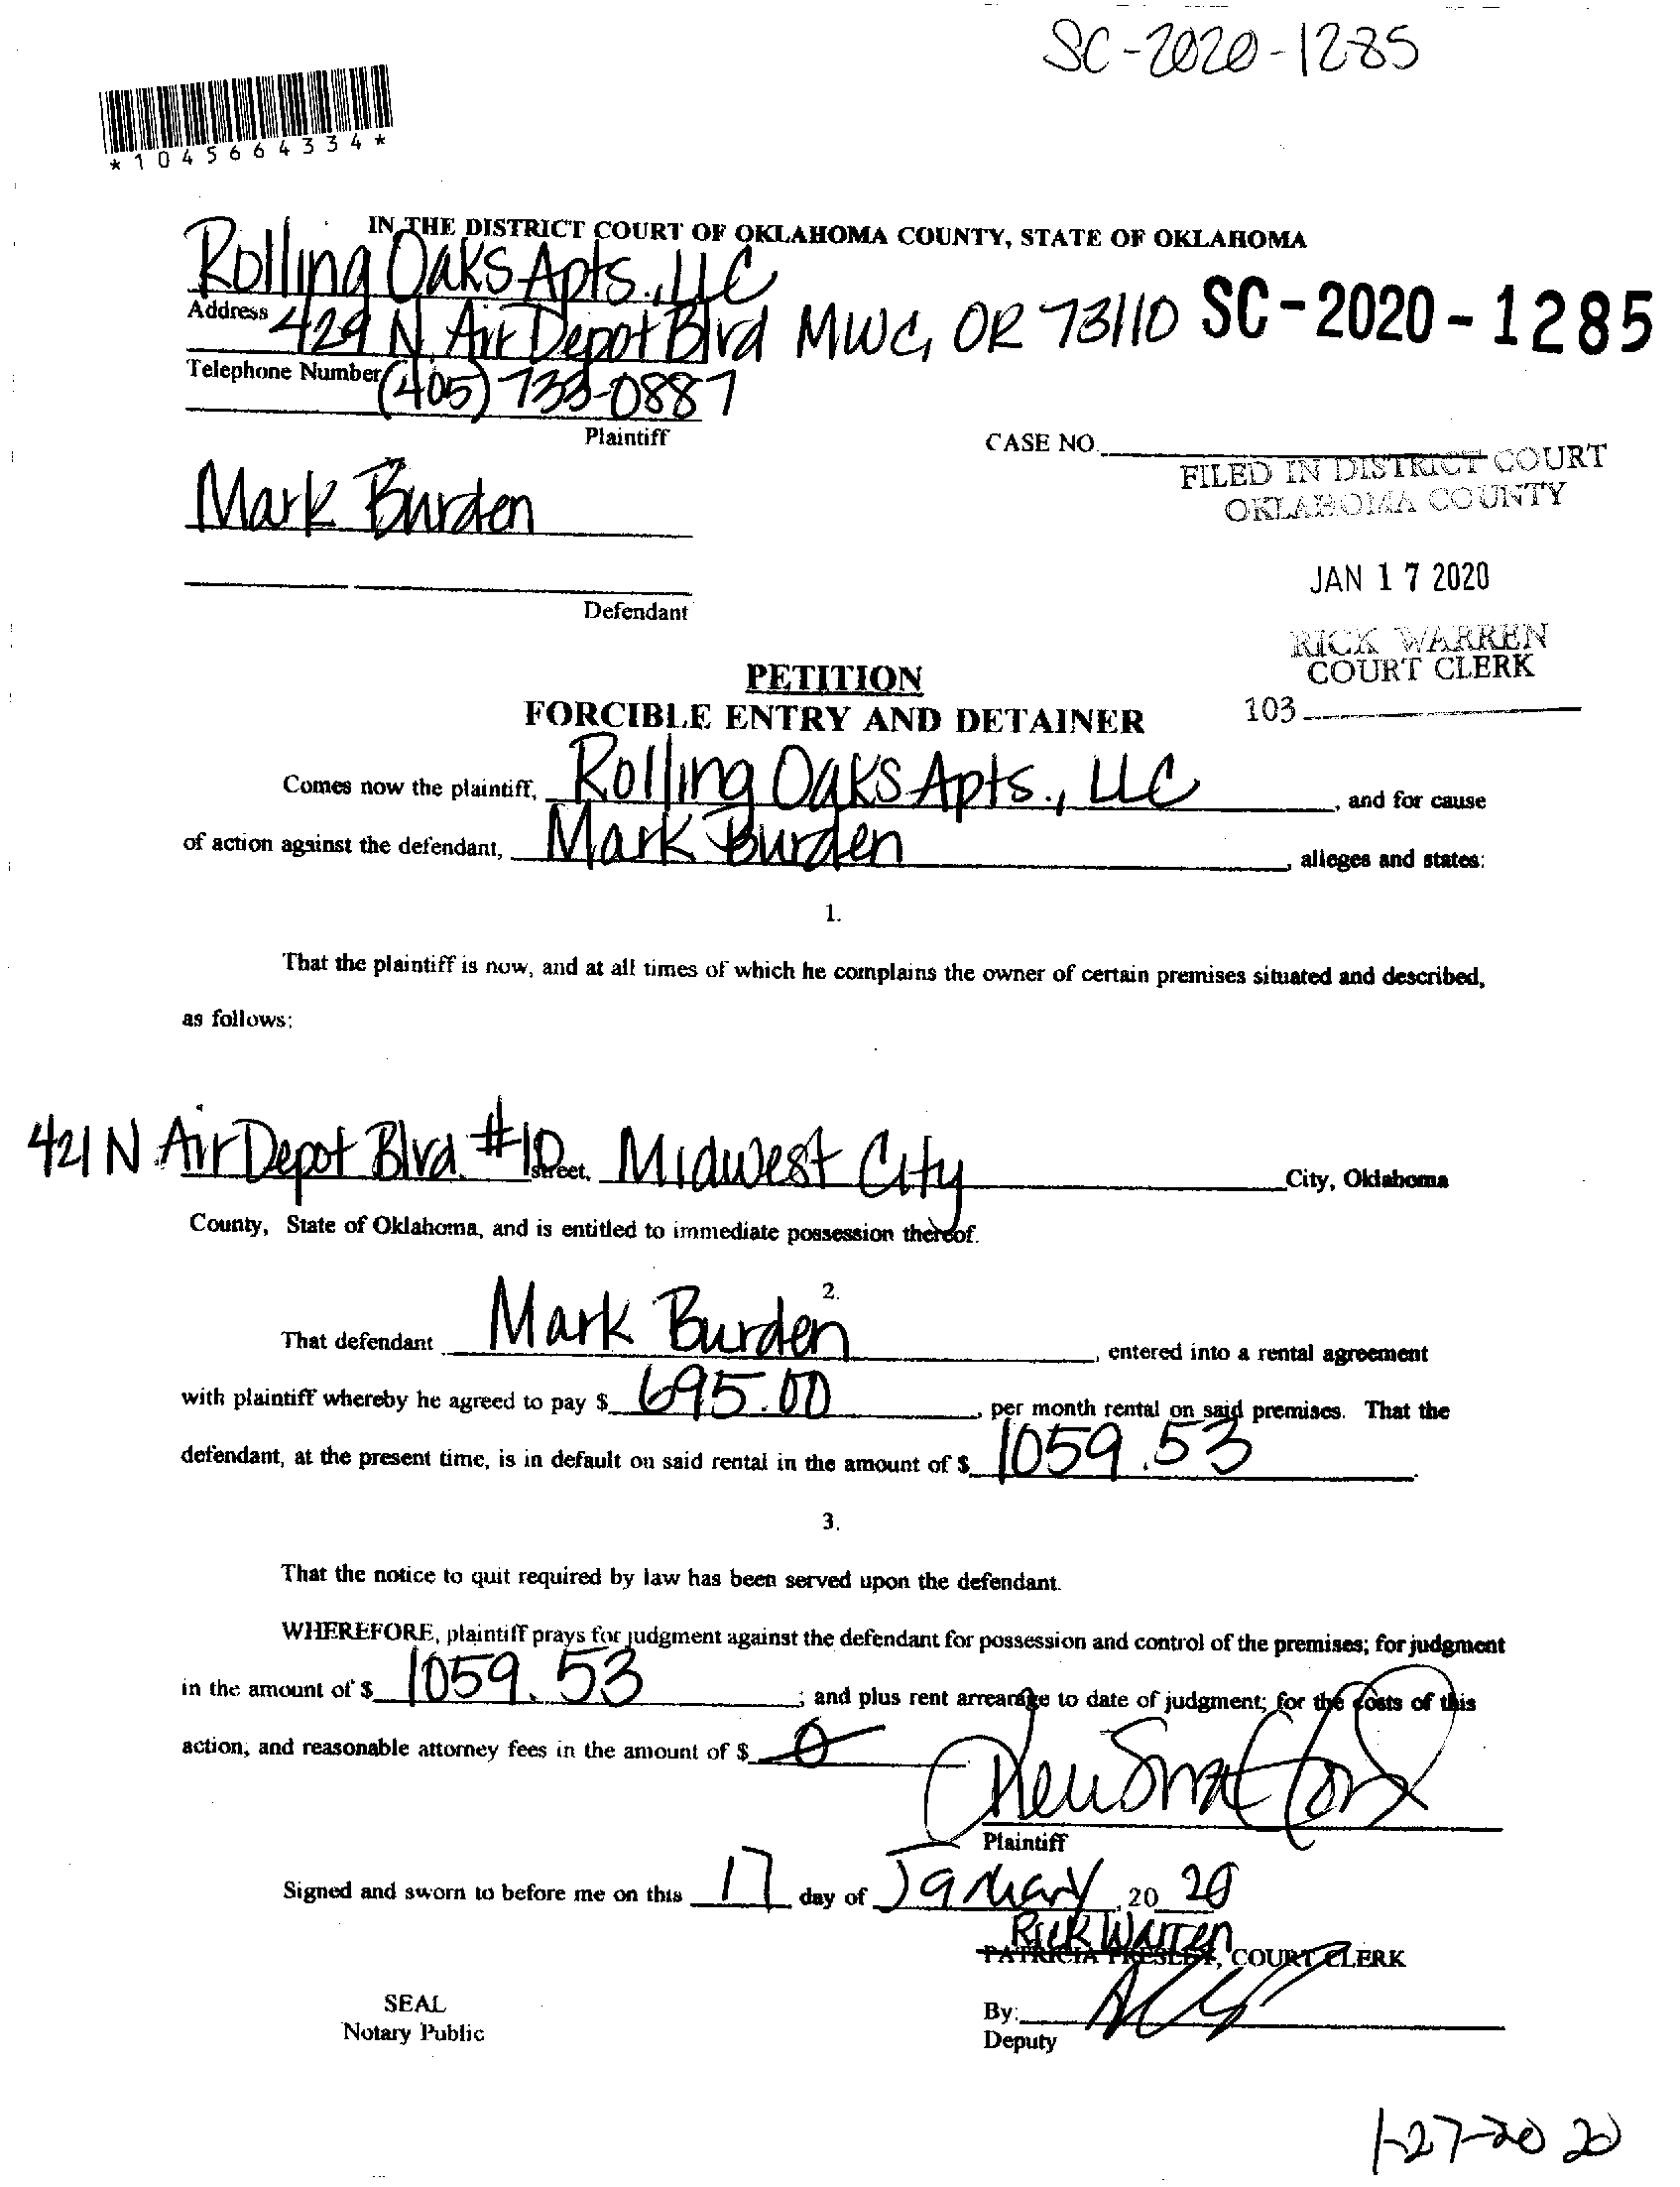 SC-2020-1285
*1045664334*
IN THE DISTRICT COURT OF OKLAHOMA COUNTY, STATE OF OKLAHOMA
Rolling Oaks Apts., LLC
Address 429 N. Air Depot Blvd MWC, OK 73110 SC-2020-1285
Telephone Number (405) 733-0887
Plaintiff
CASE NO.
FILED IN DISTRICT COURT
OKLAHOMA COUNTY
Mark Burden
JAN 17 2020
Defendant
RICK WARREN
COURT CLERK
103
PETITION
FORCIBLE ENTRY AND DETAINER
Comes now the plaintiff, Rolling Oaks Apts., LLC, and for cause
of action against the defendant, Mark Burden, alleges and states:
1.
That the plaintiff is now, and at all times of which he complains the owner of certain premises situated and described,
as follows:
421 N Air Depot Blvd. #10 street, Midwest City City, Oklahoma
County, State of Oklahoma, and is entitled to immediate possession thereof.
2.
That defendant Mark Burden, entered into a rental agreement
with plaintiff whereby he agreed to pay $ 695.00, per month rental on said premises. That the
defendant, at the present time, is in default on said rental in the amount of $ 1059.53
3.
That the notice to quit required by law has been served upon the defendant.
WHEREFORE, plaintiff prays for judgment against the defendant for possession and control of the premises; for judgment
in the amount of $ 1059.53; and plus rent arrearage to date of judgment; for the costs of this
action; and reasonable attorney fees in the amount of $ 0
Plaintiff
Signed and sworn to before me on this 17 day of January, 20 20
Rick Warren
PATRICIA PRESLEY, COURT CLERK
SEAL
Notary Public
By:
Deputy
1-27-2020